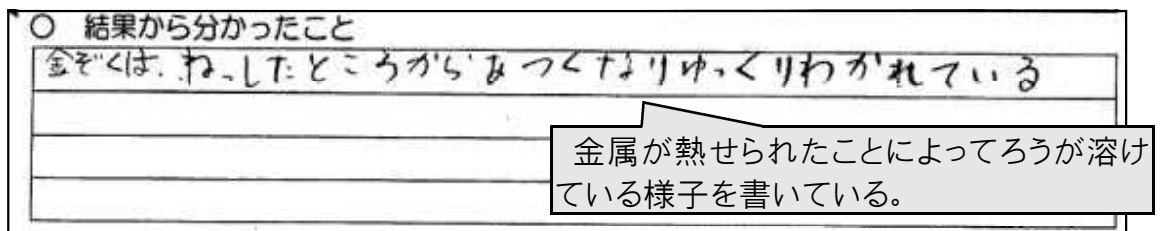 ○ 結果から分かったこと
金ぞくは、ねっしたところからあつくなりゆっくりわかれている
金属が熱せられたことによってろうが溶け
ている様子を書いている。